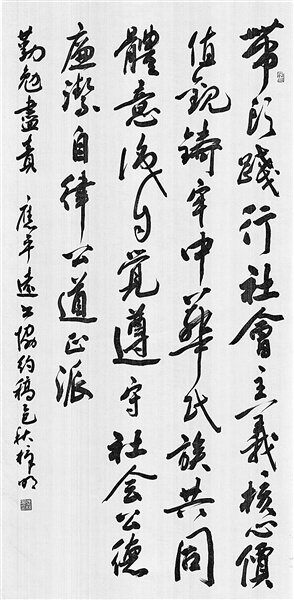 帶頭踐行社會主義核心價
值觀鑄牢中華民族共同
體意識自覺遵守社会公德
廉潔自律公道正派
勤勉盡責 應平遠书協约稿